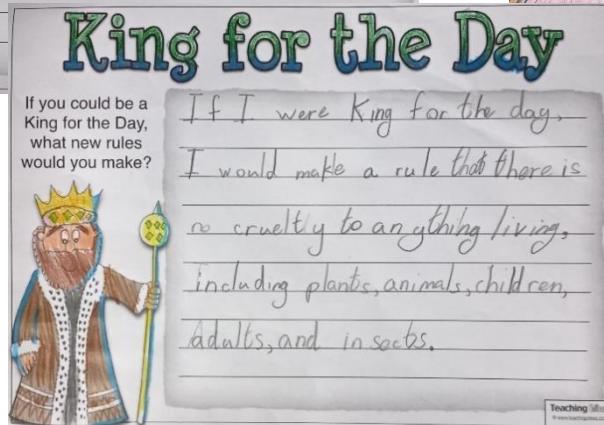 King for the Day
If you could be a
King for the Day,
what new rules
would you make?
If I were King for the day,
I would make a rule that there is
no cruelty to anything living,
including plants, animals, children,
Adults, and insects.
Teaching